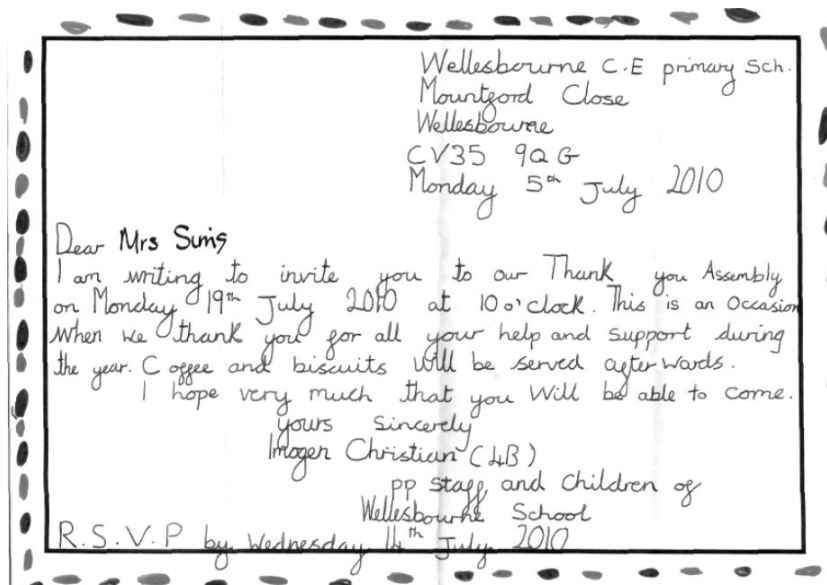 Wellesbourne C.E primary Sch.
Mountford Close
Wellesbourne
CV35 9QG
Monday 5th July 2010
Dear Mrs Sims
I am writing to invite you to our Thank you Assembly
on Monday 19th July 2010 at 10 o'clock. This is an Occasion
When we thank you for all your help and support during
the year. Coffee and biscuits will be served afterwards.
I hope very much that you Will be able to come.
yours sincerely
Imogen Christian (4B)
pp staff and children of
Wellesbourne School
R.S.V.P by Wednesday 14th July 2010